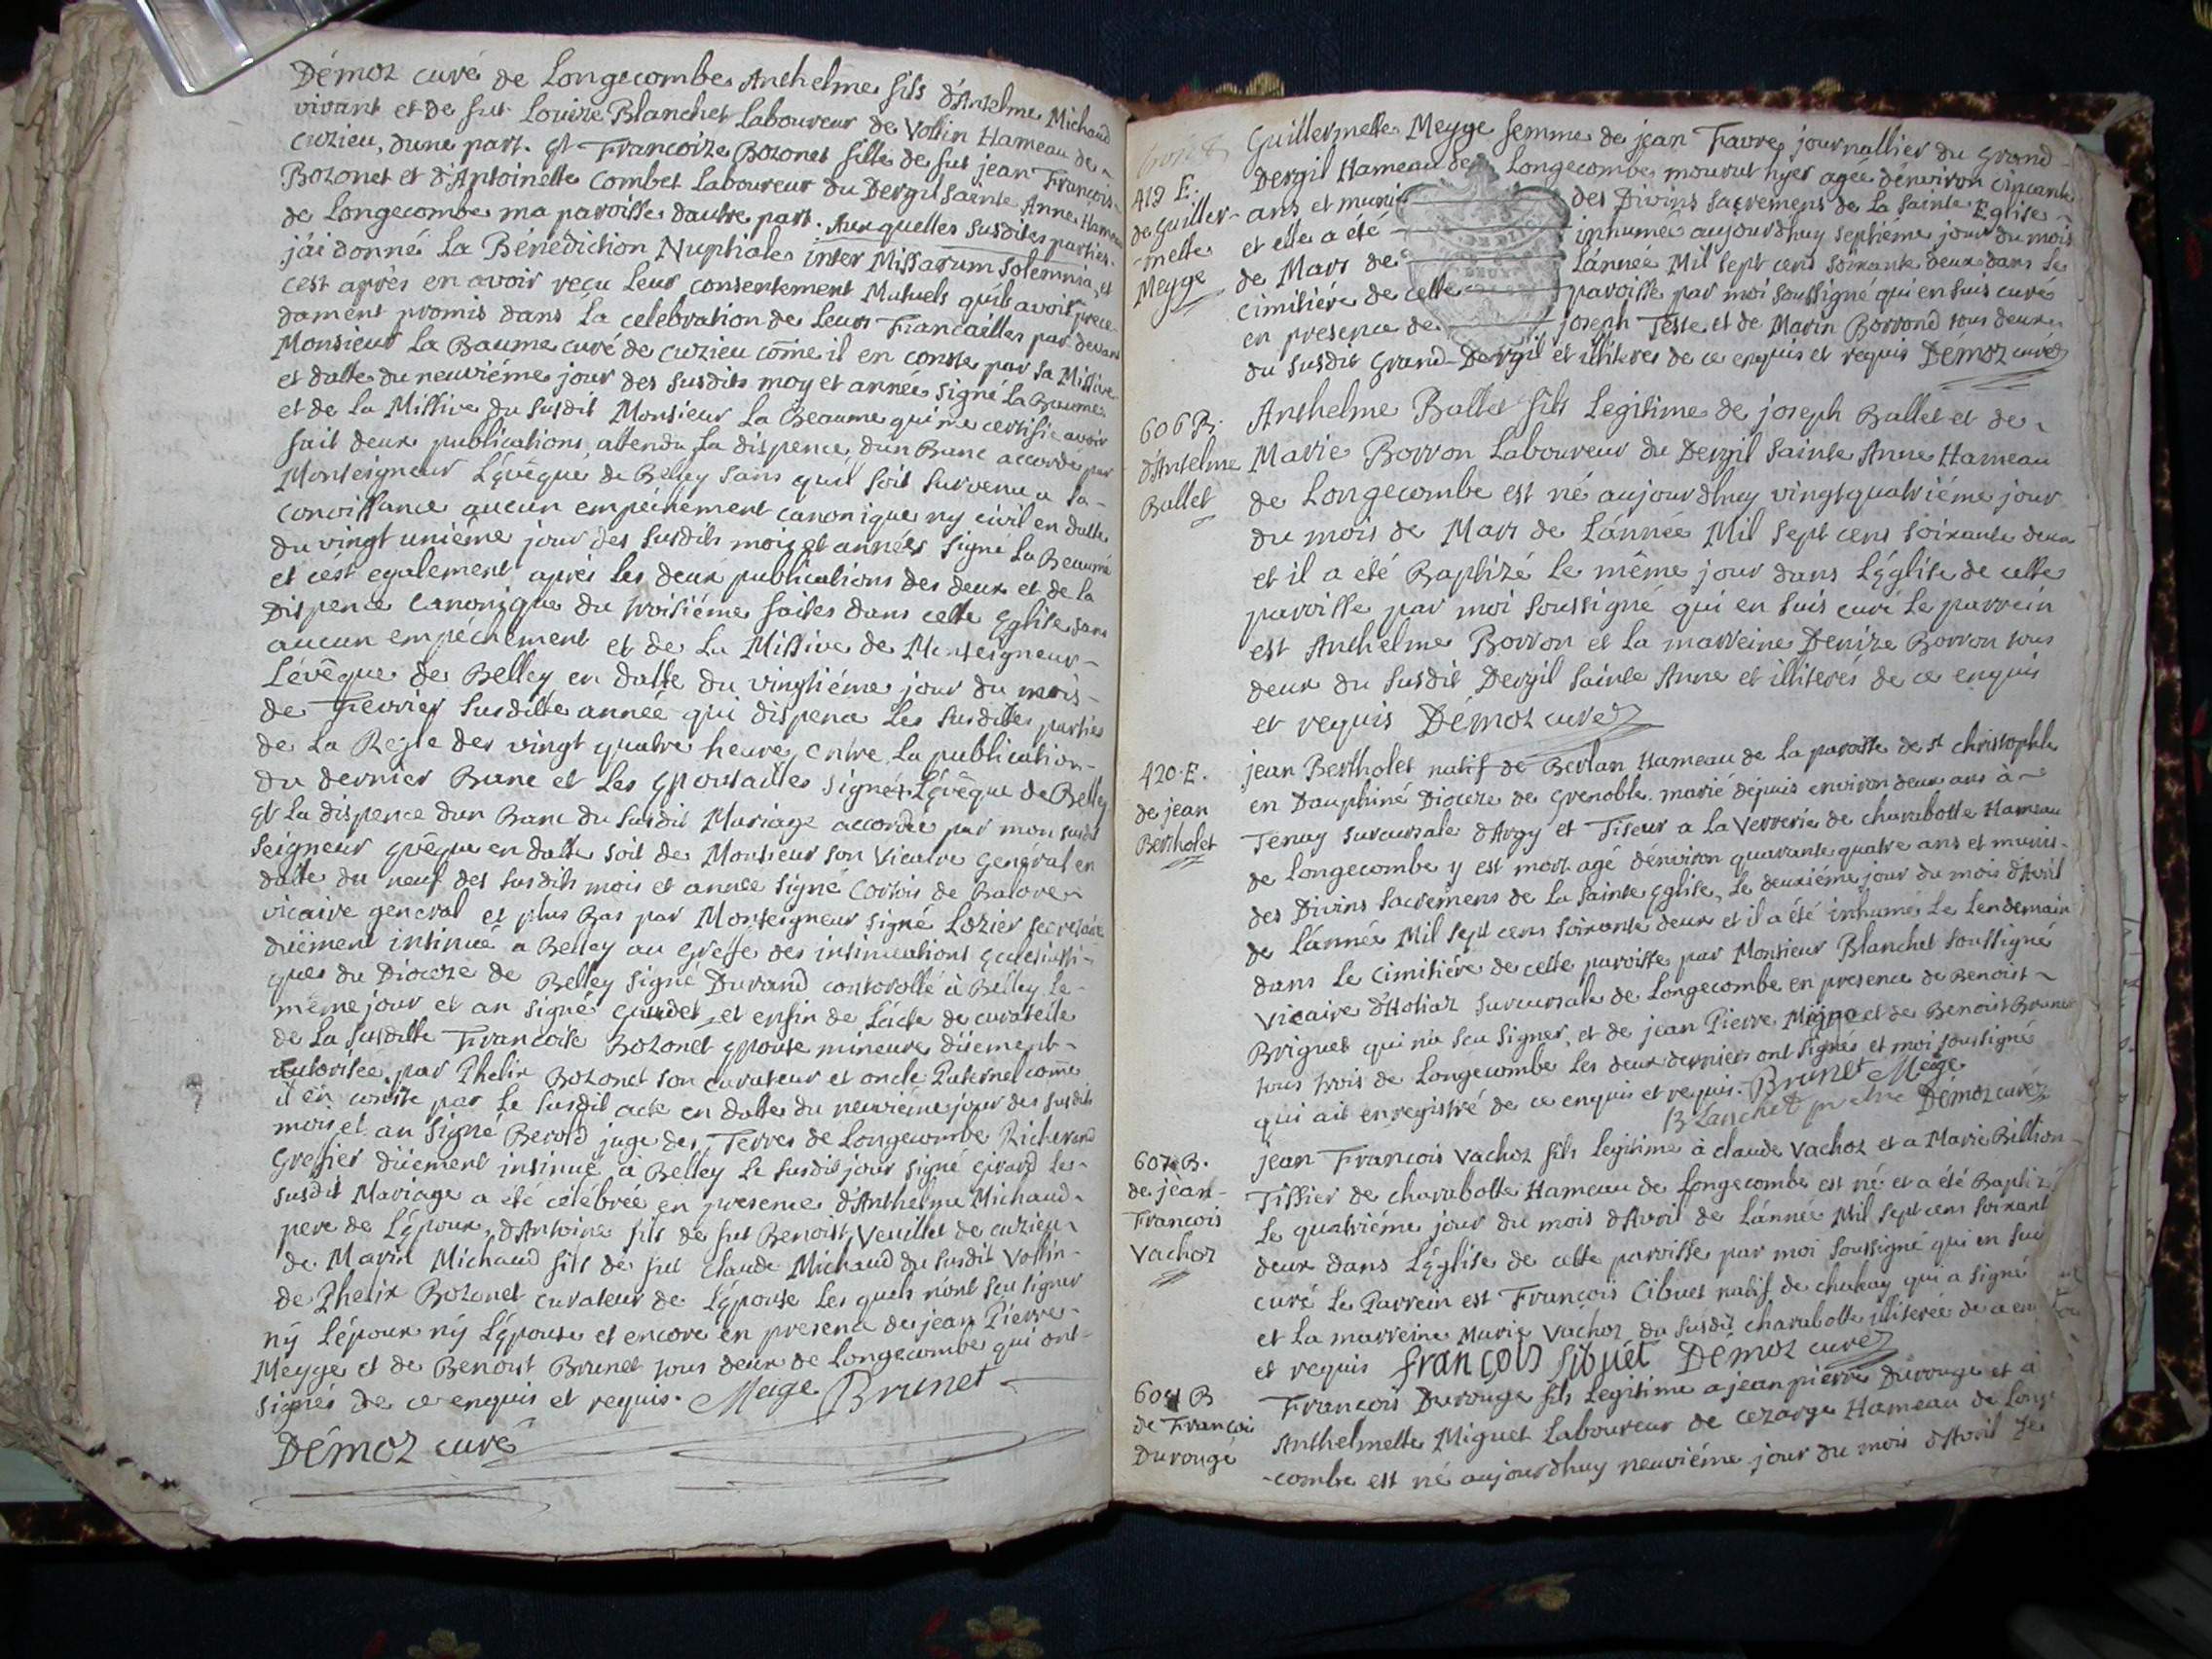 Démoz curé de Longecombe Anthelme fils d'Antelme Michaud
vivant et de fut Louize Blanchet Laboureur de Vollin Hameau de
Cuzieu, dune part. Et Francoize Bozonet fille de fut jean Francois
Bozonet et d'Antoinette Combet Laboureur du Dergil sainte Anne Hameau
de Longecombe ma paroisse dautre part. Auxquelles susdites parties
j'ai donné La Bénédiction Nuptiale inter Missarum solemnia, et
cest après en avoir reçu leur consentement Mutuels quils avoit prece-
dament promis dans La celebration de Leurs Francailles par devant
Monsieur La Baume curé de Cuzieu come il en conste par sa Missive
et datte du neuviéme jour des susdits moy et année signé La Baume
et de La Missive du susdit Monsieur La Beaume qui me certifie avoir
fait deux publications, attendu La dispence d'un Banc accordé par
Monseigneur L'évêque de Belley sans quil soit survenu a sa
conoissance aucun empéchement canonique ny civil en datte
du vingt uniéme jour des susdits mois et année signé La Beaume
et cest egalement aprés les deux publications des deux et de la
Dispence Canonique du troisiéme faites dans cette Eglise sans
aucun empéchement et de La Missive de Monseigneur
L'évêque de Belley en datte du vingtiéme jour du mois
de Fevrier susditte année qui dispence Les susdittes parties
de La Regle des vingt quatre heure, entre La publication
du dernier Banc et Les Epousailles signé L'évêque de Belley
Et La dispence d'un Banc du susdit Mariage accordée par mon susdit
seigneur evêque en datte soit de Monsieur son Vicaire Genéral en
datte du neuf des susdits mois et année signé Cortois de Balore
vicaire general et plus Bas par Monseigneur signé Lozier secretaire
düement insinué a Belley au Greffe des insinuations Eclesiasti-
ques du Dioceze de Belley signé Durand controllé à Belley le
même jour et an signé Gaudet, et enfin de L'acte de curatelle
de La susditte Francoise Bozonet Epouse mineure düement
autorisée par Phelix Bozonet son curateur et oncle Paternel come
il en conste par Le susdit acte en datte du neuviéme jour des susdits
mois et an signé Berold juge des Terres de Longecombe Richerand
Greffier düement insinué à Belley Le susdit jour signé Girard Le
susdit Mariage a été célébrée en presence d'Anthelme Michaud
pere de L'époux, d'Antoine fils de fut Benoist Veuillet de cuzieu
de Marin Michaud fils de fut Claude Michaud du susdit Vollin
de Phelix Bozonet curateur de L'épouse Les quels n'ont scu signer
ny L'époux ny L'épouse et encore en presence de jean Pierre
Meyge et de Benoist Brunet tous deux de Longecombe qui ont
signés de ce enquis et requis. Meige Brunet
Démoz curé
419 E.
de Guiller-
-mette
Meyge
Guillermette Meyge femme de jean Favre journallier du Grand
Dergil Hameau de Longecombe mourut hyer agée d'environ cincante
ans et muni des Divins sacremens de La sainte Eglise
et elle a été inhumée aujourdhuy septiéme jour du mois
de Mars de L'année Mil sept cens soixante deux dans Le
cimitiére de cette paroisse par moi soussigné qui en suis curé
en presence de joseph Teste et de Marin Borrond tous deux
du susdit Grand-Dergil et illiteres de ce enquis et requis Démoz curé
606 B.
d'Antelme
Ballet
Anthelme Ballet fils Legitime de joseph Ballet et de
Marie Borron Laboureur du Dergil Sainte Anne Hameau
de Longecombe est né aujourdhuy vingtquatriéme jour
du mois de Mars de L'année Mil sept cens soixante deux
et il a été Baptizé Le même jour dans L'église de cette
paroisse par moi soussigné qui en suis curé Le parrein
est Anthelme Borron et La marreine Denize Borron tous
deux du susdit Dergil Sainte Anne et illiterés de ce enquis
et requis Démoz curé
420. E.
de jean
Bertholet
jean Bertholet natif de Berlan Hameau de La paroisse de st christophle
en Dauphiné Dioceze de Grenoble. marié depuis environ deux ans à
Tenay succursale d'Argy et Tiseur a La Verrerie de charabotte Hameau
de Longecombe y est mort agé d'environ quarante quatre ans et munis
des Divins sacremens de La Sainte Eglise, Le deuxiéme jour du mois d'Avril
de L'année Mil sept cens soixante deux et il a été inhumé Le Lendemain
dans Le Cimitiére de cette paroisse par Monsieur Blanchet soussigné
Vicaire d'Hotiaz succursale de Longecombe en presence de Benoist
Briguet qui n'a scu signer, et de jean Pierre Meige et de Benoist Brunet
tous trois de Longecombe Les deux derniers ont signés et moi soussigné
qui ait enregistré de ce enquis et requis. Brunet Meige
Blanchet prêtre Démoz curé
607 B.
de jean-
Francois
Vachoz
jean Francois Vachoz fils Legitime à claude Vachoz et a Marie Billion
Tissier de charabotte Hameau de Longecombe est né et a été Baptizé
Le quatriéme jour du mois d'Avril de L'année Mil sept cens soixant
deux dans L'église de cette paroisse par moi soussigné qui en sui
curé Le Parrein est François Cibuet natif de chaley qui a signé
et La marreine Marie Vachoz du susdit charabotte illiterée de ce en
et requis françois sibuét Démoz curé
608 B
de Françoi
Durouge
Francois Durouge fils Legitime a jean pierre Durouge et a
Anthelmette Miguet Laboureur de Cezarge Hameau de Longe
-combe est né aujourdhuy neuviéme jour du mois d'Avril de